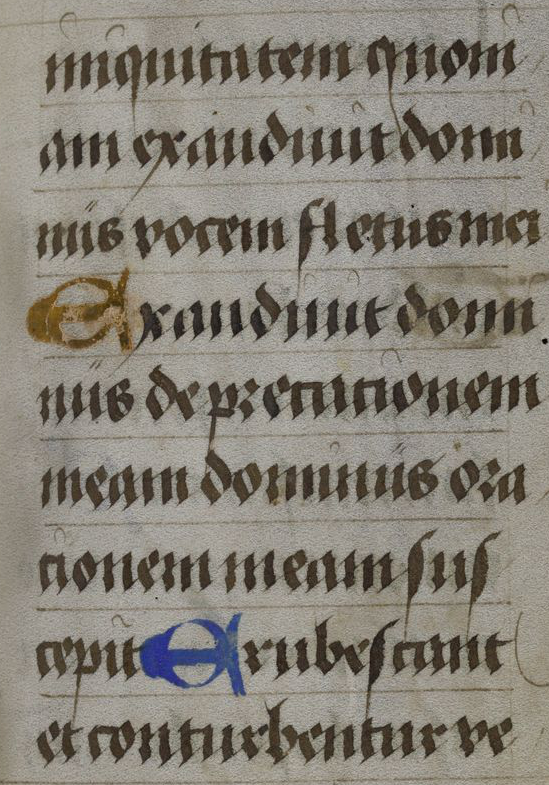 iniquitatem quoni
am exaudiuit domi
nus vocem fletus mei
Exaudiuit domi
nus deprecationem
meam dominus ora
cionem meam sus
cepit Erubescant
et conturbentur ve